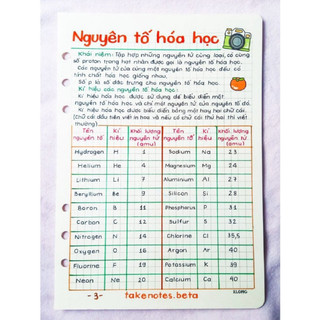 Nguyên tố hóa học
Khái niệm: Tập hợp những nguyên tử cùng loại, có cùng
số proton trong hạt nhân được gọi là nguyên tố hóa học.
Các nguyên tử của cùng một nguyên tố hóa học đều có
tính chất hóa học giống nhau.
Số p là số đặc trưng cho nguyên tố hóa học.
Kí hiệu các nguyên tố hóa học:
Kí hiệu hóa học được sử dụng để biểu diễn một
nguyên tố hóa học và chỉ một nguyên tử của nguyên tố đó.
Kí hiệu hóa học được biểu diễn bằng một hay hai chữ cái.
(chữ cái đầu tiên viết in hoa và nếu có chữ cái thứ hai thì viết
thường).
Tên nguyên tố Kí hiệu Khối lượng nguyên tử (amu) Tên nguyên tố Kí hiệu Khối lượng nguyên tử (amu)
Hydrogen H 1 Sodium Na 23
Helium He 4 Magnesium Mg 24
Lithium Li 7 Aluminium Al 27
Beryllium Be 9 Silicon Si 28
Boron B 11 Phosphorus P 31
Carbon C 12 Sulfur S 32
Nitrogen N 14 Chlorine Cl 35,5
Oxygen O 16 Argon Ar 40
Fluorine F 19 Potassium K 39
Neon Ne 20 Calcium Ca 40
-3-
takenotes.beta
KLONG